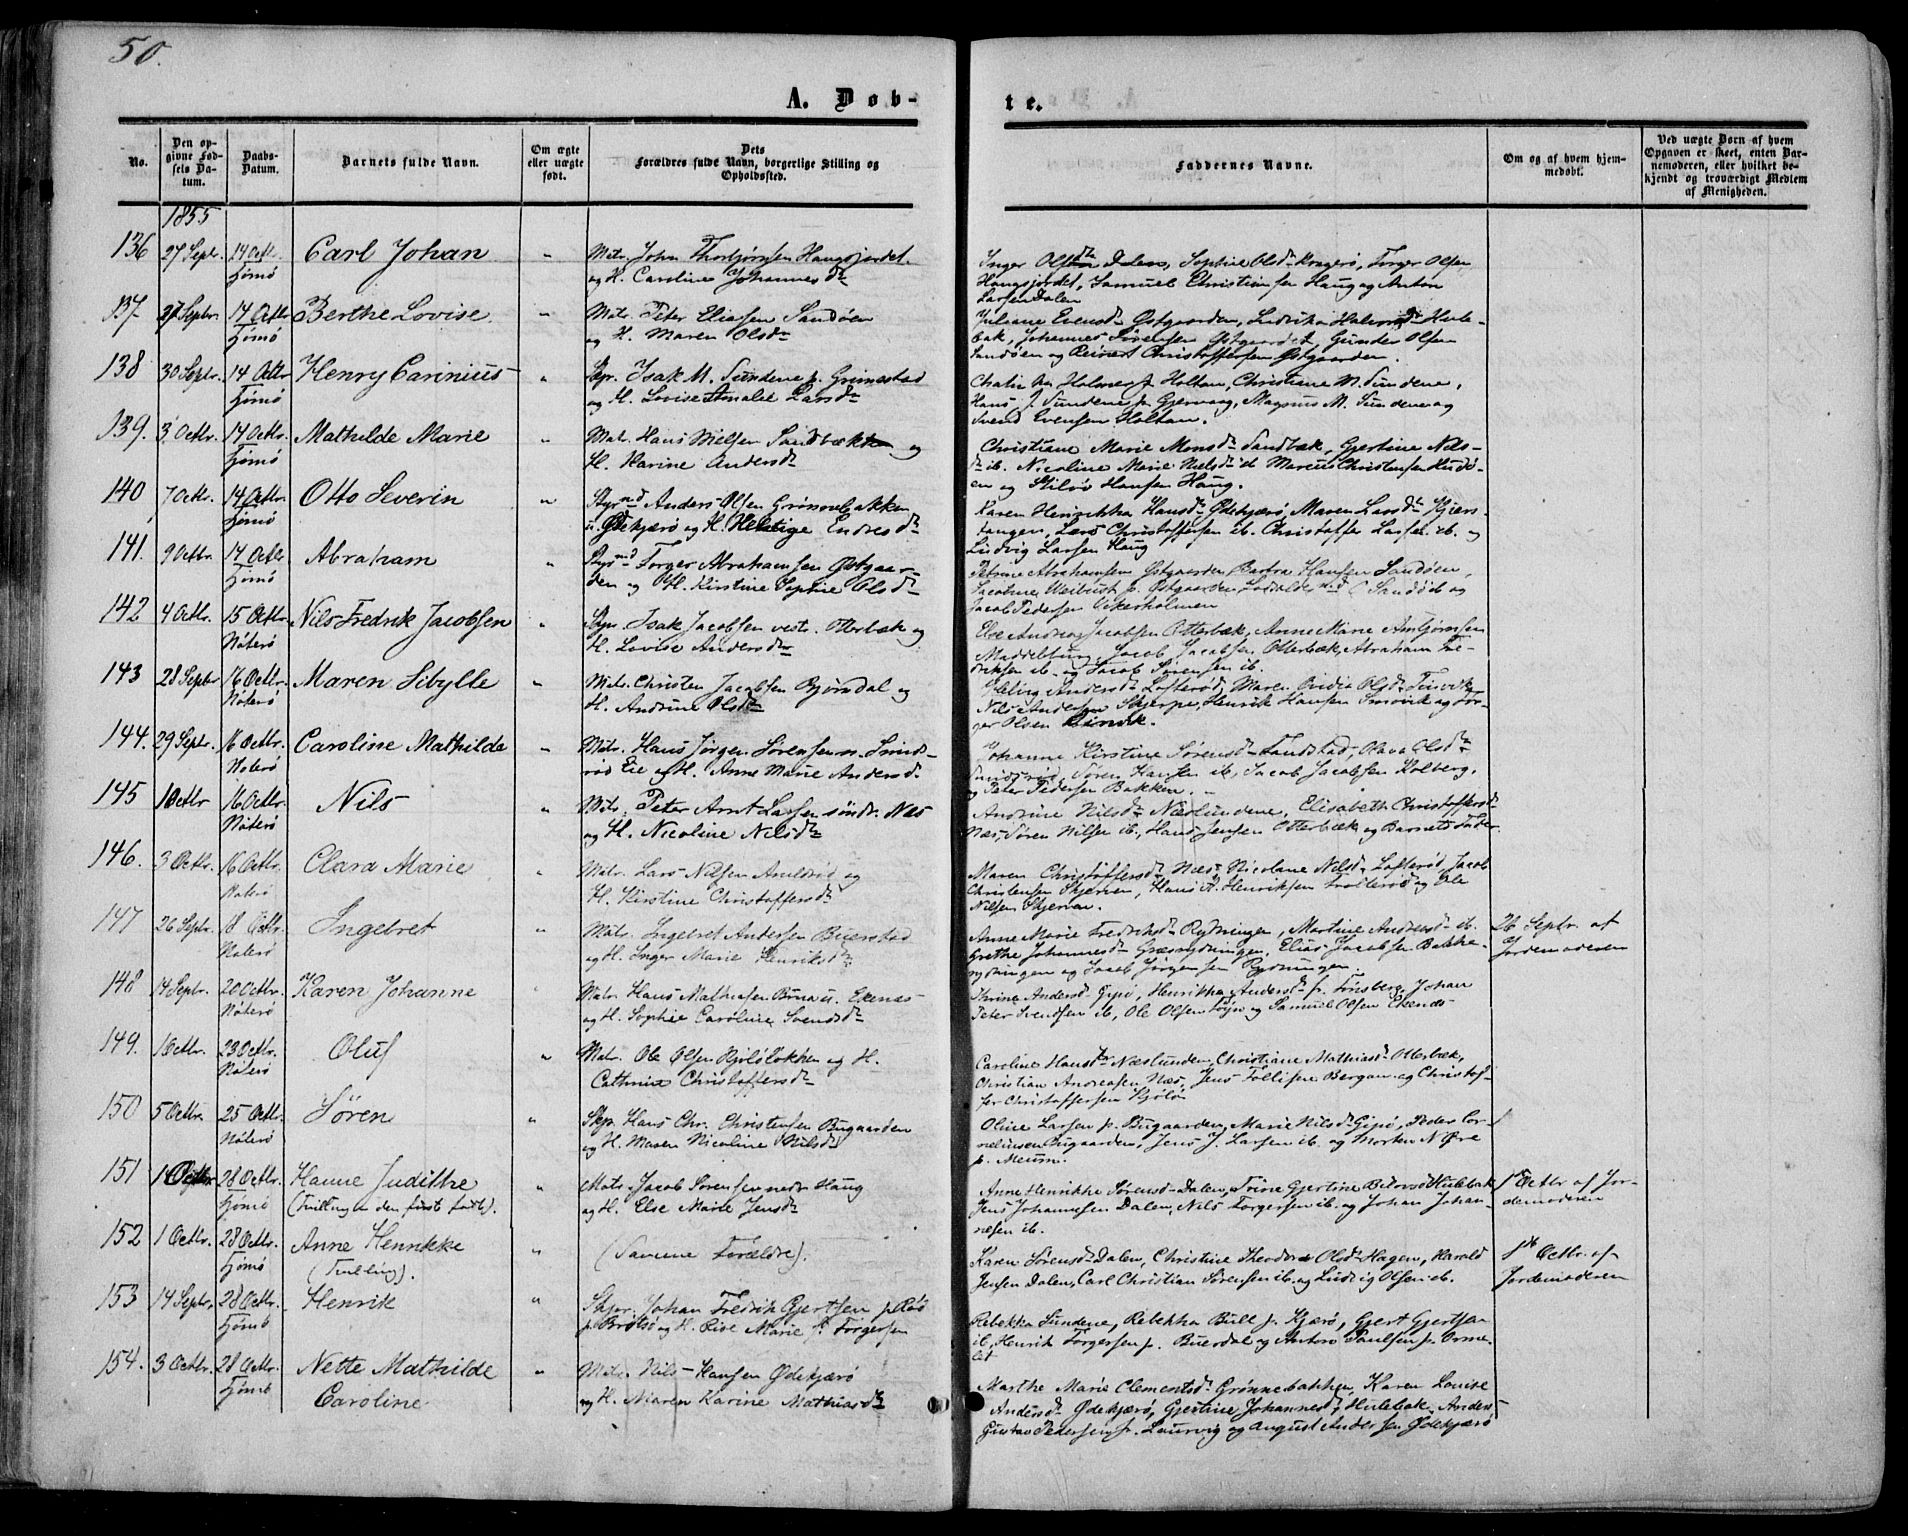 50.
A. Døb-
te.
No.
Den op-
givne Fød-
sels Da-
tum.
Daabs-
Datum.
Barnets fulde Navn.
Om ægte
eller uægte
født.
Dets
Forældres fulde Navn, borgerlige Stilling og
Opholdssted.
Faddernes Navne.
Om og af hvem hjem-
medøbt.
Ved uægte Børn af hvem
Opgaven er skeet, enten Bar-
nemoderen, eller hvilket be-
kjendt og troværdigt Medlem
af Menigheden.
1855
136 27 Septr. 14 Octr. Carl Johan " Matr. John Thorbjørnsen Haugsjordet
Tjømø og H. Caroline Johannesdr
Inger Olsdr Dalen, Sophie Olsdr Kragerø, Torger Olsen
Haugsjordet, Samuel Christiansen Haug og Anton
Larsen Dalen
137 27 Septbr. 14 Octbr Berthe Lovise " Matr. Peter Eliasen Sandøen
Tjømø og H. Maren Olsdr
Juliane Evensdr Østgaarden, Halvorsdr Hvle-
bak, Johannes Sørensen Østgaardet, Gunder Olsen
Sandøen og Reinert Christoffersen Østgaarden.
138 30 Septr. 14 Octbr Henry Carinius " Skp. Isak M. Sundene p. Grimestad
Tjømø og H. Lovise Amalie Larsdr
Holmer p. Holtan, Christiane M. Sundene,
Hans J. Sundene p. Gjervaag, Magnus M. Sundene og
Svend Evensen Holtan.
139. 3 Octbr. 14 Octbr. Mathilde Marie " Matr. Hans Nielsen Sandbæk og
Tjømø H. Karine Andersdr
Christiane Marie Monsdr Sandbæk, Gjertine Nils-
dr ib. Nicoline Marie Nielsdr ib Marcus Christensen Hudø-
en og Hansen Haug.
140 7 Octbr. 14 Octbr. Otto Severin " Styrmd Anders Olsen Grønnebakken
Tjømø u. Ødekjærø og H. Helvige Endresdr
Karen Henrikka Hansdr Ødekjærø, Maren Larsdr Hjers-
tangen, Lars Christoffersen ib. Christoffer Larsen ib. og
Ludvig Larsen Haug
141. 9 Octbr. 14 Octbr Abraham " Styrmd Torger Abrahamsen Østgaar-
Tjømø den og H. Kirstine Sophie Olsdr
Petrine Abrahamsen Østgaarden, Hansen Sandøen,
Jacobine Weibust p. Østgaarden, Sandø ib og
Jacob Pedersen
142 4 Octbr. 15 Octbr. Nils Fredrik Jacobsen " Skp. Isak Jacobsen vestr. Otterbæk og
Nøterø H. Lovise Andersdr
Else Andrea Jacobsen Otterbæk, Anne Marie
Jacob Jacobsen Otterbæk, Abraham Fre-
driksen ib. og Jacob Sørensen ib.
143 28 Septbr 16 Octbr. Maren Sibylle " Matr. Christen Jacobsen Bjørndal og
Nøterø H. Andrine Olsdr
Andersdr Lofterød, Maren Olsdr
Nils Andersen Skjerpe, Henrik Hansen og Tor-
ger Olsen
144. 29 Septr. 16 Octbr. Caroline Mathilde " Matr. Hans Jørgen Sørensen
Nøterø rød Eie og H. Anne Marie Andersdr.
Johanne Kirstine Sørensdr Olava Olsdr
Søren Hansen ib, Jacob Jacobsen Kolberg,
og Peter Pedersen Bakken.
145 1 Octbr 16 Octbr. Nils " Matr. Peter Arnt Larsen søndr. Næs
Nøterø og H. Nicoline Nilsdr
Andrine Nilsdr Næslundene, Elisabeth Christoffersdr
Næs, Søren Nilsen ib, Hans Jensen Otterbæk og Barnets Fader
146. 3 Octbr. 16 Octbr. Clara Marie " Matr. Lars Nilsen og
Nøterø H. Kirstine Christoffersdr
Maren Christoffersdr Næs, Nicoline Nilsdr Lofterød, Jacob
Christensen Skjerven, Hans A. Henriksen og Ole
Nilsen Skjerven.
147 26 Septbr. 18 Octbr. Ingebret " Matr. Ingebret Andersen Buerstad
Nøterø og H. Inger Marie Henriksdr
Anne Marie Fredriksdr Rydningen, Martine Andersdr ib.
Grethe Johannesdr Græsrydningen, Elias Jacobsen Bakke-
rydningen og Jacob Jørgensen Rydningen
26 Septbr. af
Jordemoderen
148 14 Septbr. 20 Octbr. Karen Johanne " Matr. Hans Mathiasen u. Ekenæs
Nøterø og H. Sophie Caroline Svendsdr
Thrine Andersdr Gipø, Henrikka Andersdr p. Tønsberg, Johan
Peter Svendsen ib, Ole Olsen og Samuel Olsen Ekenæs
149. 1 Octbr. 23 Octbr. Oluf " Matr. Ole Olsen Kjøløløkken og H.
Nøterø Cathrine Christoffersdr
Caroline Hansdr Næslunden, Christiane Mathiasdr Otterbæk,
Christian Andreasen Næs, Jens Tollefsen Bergan og Christof-
fer Christoffersen Kjølø
150 5 Octbr. 25 Octbr. Søren " Skp. Hans Chr. Christensen Bugaarden
Nøterø og H. Maren Nicoline Nilsdr
Oline Larsen p. Bugaarden, Marie Nilsdr Gipø, Peder Cor-
neliussen Bugaarden, Jens J. Larsen ib. og Morten N. Øre
p. Meum.
151 1 Octbr 28 Octbr. Hanne Judithe " Matr. Jacob Sørensen nedr Haug
Tjømø (Tvilling, den først fødte). og H. Else Marie Jensdr
Anne Henrikke Sørensdr Dalen, Trine Gjertine Hulebak
Jens Johannesen Dalen, Nils Torgersen ib. og Johan Johan-
nesen ib.
1 Octbr af Jor-
demoderen
152 1 Octbr. 28 Octbr. Anne Henrikke " (Samme Forældre).
Tjømø (Tvilling).
Karen Sørensdr Dalen, Christine Theodora Olsdr Hagen, Harald
Jensen Dalen, Carl Christian Sørensen ib. og Ludvig Olsen ib.
1ste Octbr. af
Jordemoderen
153 14 Septbr. 28 Octbr. Henrik " Skpr. Johan Fredrik Gjertsen p. Røs
Tjømø p. Brøtsø og H. Rise Marie f. Torgersen
Rebekka Sundene, Rebekka Bull p. Kjærø, Gjert Gjertsen
ib, Henrik Torgersen p. Buerdal og Anton Paulsen p. Orme-
let
154. 3 Octbr. 28 Octbr. Nette Mathilde " Matr. Nils Hansen Ødekjærø
Tjømø Caroline og H. Maren Karine Mathiasdr
Marthe Marie Clementsdr Grønnebakken, Karen Louise
Andersdr Ødekjærø, Gjertine Johannesdr Hulebak, Anders
Gustav Pedersen p. Laurvig og August Andersen Ødekjærø